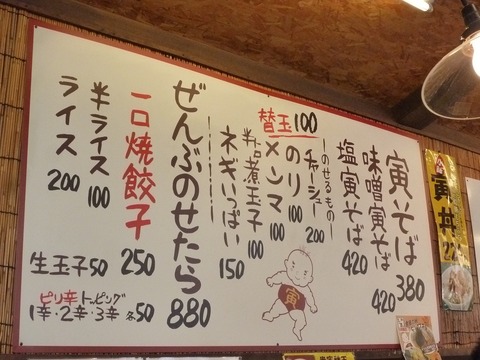 寅そば 380
味噌寅そば 420
塩寅そば 420
替玉 100
―のせるもの―
チャーシュー 200
のり 100
メンマ 100
半占煮玉子 100
ネギいっぱい 150
ぜんぶのせたら 880
一口焼餃子 250
半ライス 100
ライス 200
生玉子 50
ピリ辛トッピング
1辛・2辛・3辛 各50
寅
寅丼